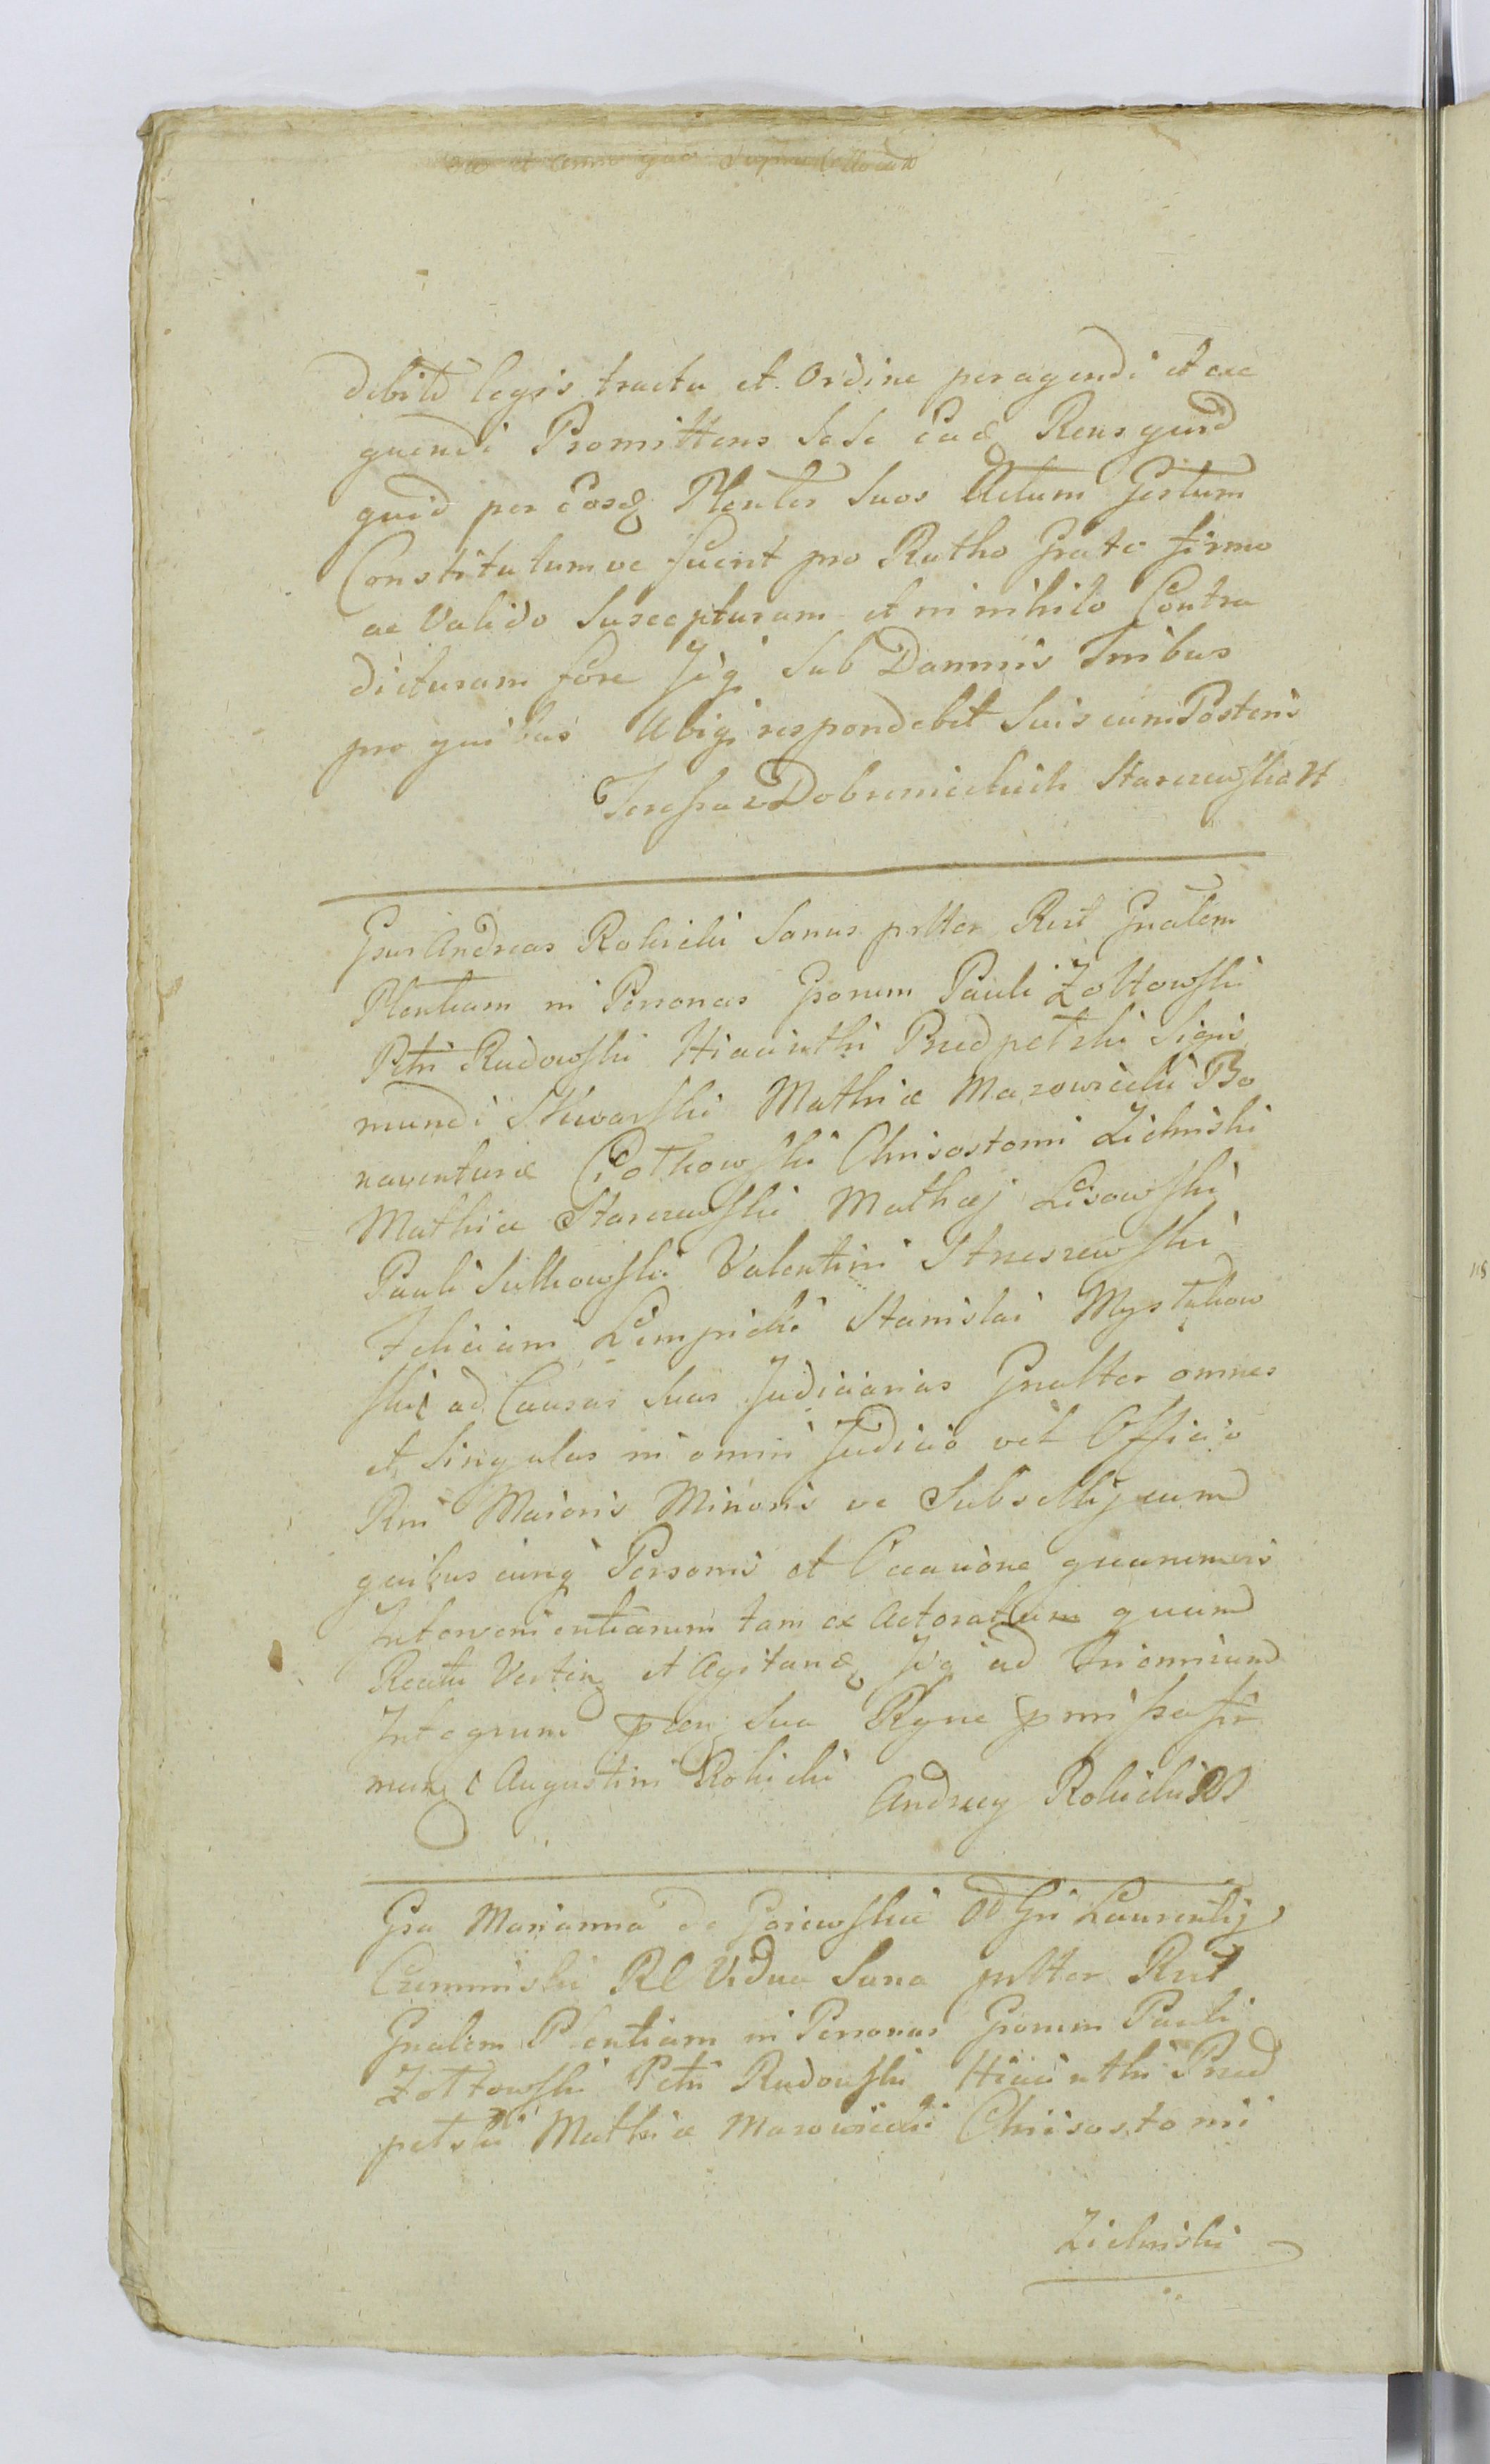 et anno quo supra
debito legis tractu et Ordine peragendi et exe
quendi Promittens Sese Ead Rens quid
quid per Eosd Plentes Suos Actum Gestum
Constitutumve fuerit pro Ratho Grato firmo
ac Valido Suscepturam et in nihilo Contra
dicturam fore Idq Sub Damnis Tribus
pro quibus Ubiq respondebit Suis cum Posteris
Teressa z Dobrnickich Starczewska
Gsus Andreas Rokicki Sanus prtter Rect Gnalem
Plentiam in Personas Gsorum Pauli Zołtowski
Petri Rudowski Hiacinthi Predpełski Sigis
mundi Skwarski Mathiæ Mazowiecki Bo
naventuræ Ciołkowski Chrisostomi Zielinski
Mathiæ Starczewski Mathæj Lisowski
Pauli Sułkowski Valentini Strzeszewski
Feliciani Lempicki Stanislai Mystkow
ski ad Causas Suas Judiciarias Gnalter omnes
et Singulas in omni Judicio vel Officio
Rni Maioris Minoris ve Subsellij cum
quibus cunq Personis et Occasione quarumvis
Intervenientiarum tam ex Actoratum quam
Reatu Verten et Agitand Idq ad Triennium
Integrum pten Sua Rgne
man Augustini Rokicki
Andrzey Rokicki
Gsa Marianna de Goiewskie Od Gsi Laurentij
Cumminski Rl Vidua Sana prtter Rect
Gnalem Plentiam in Personas Gsorum Pauli
Zołtowski Petri Rudowski Hiacinthi Pred
pełski Mathiæ Mazowiecki Chrisostomi
Zielinski